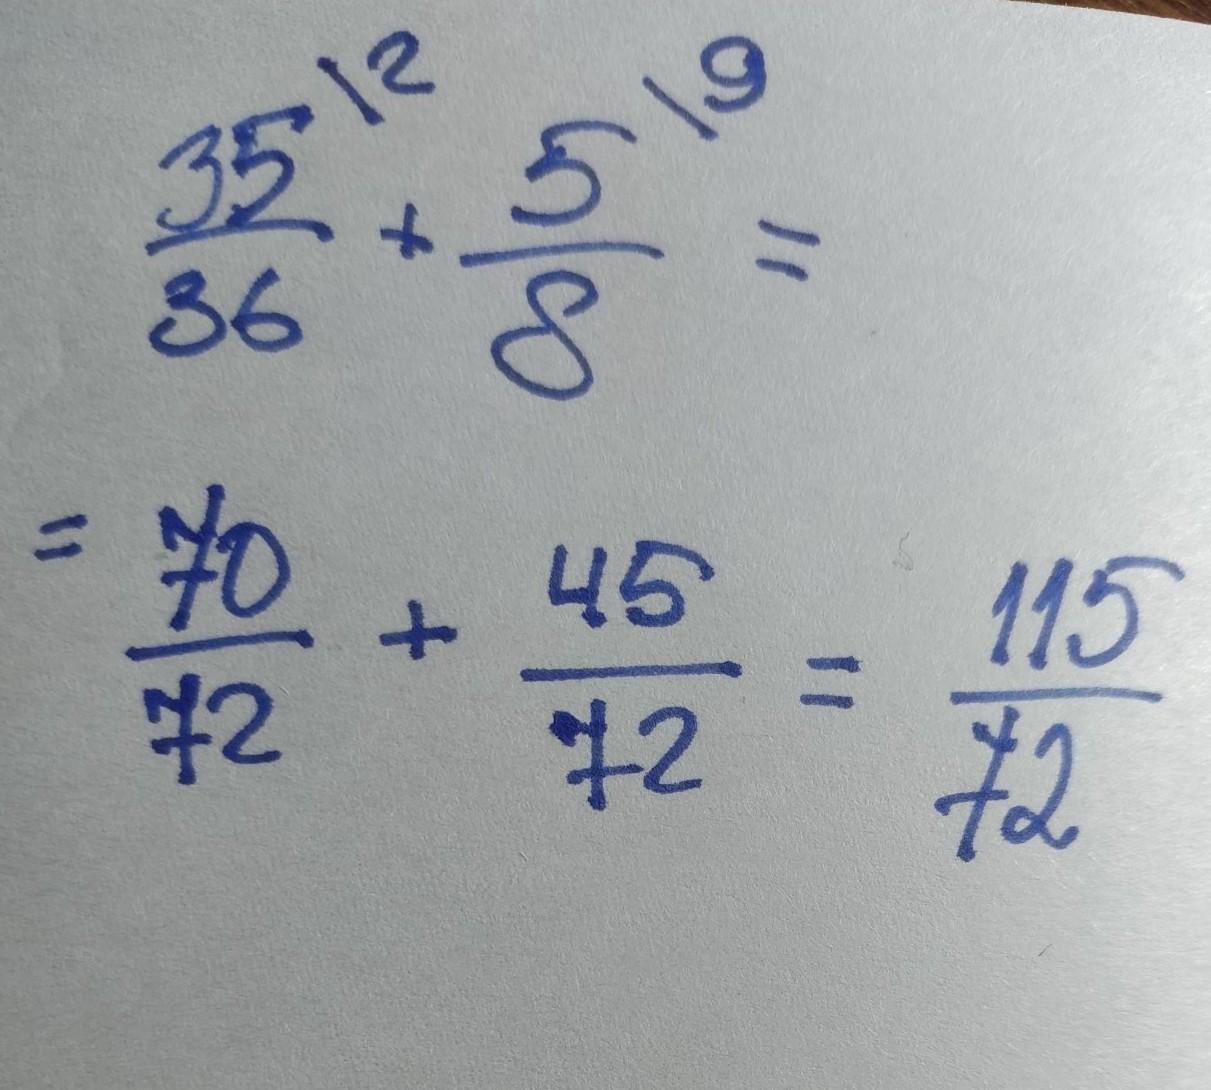 35/36 \2 + 5/8 \9 =
= 70/72 + 45/72 = 115/72